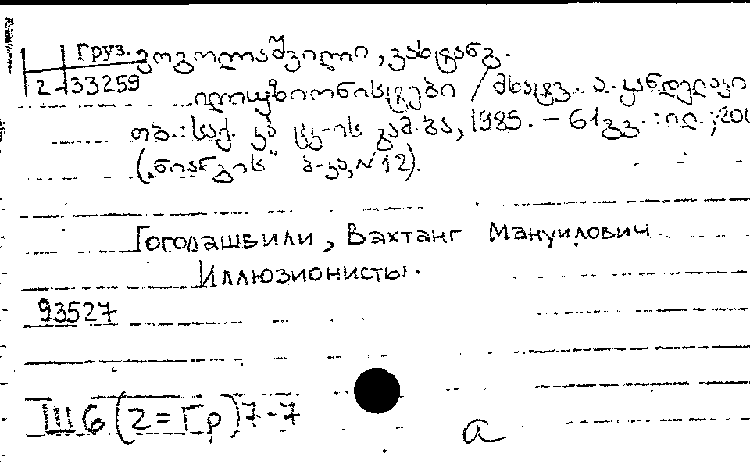 груз. გოგოლაშვილი, ვახტანგ.
2-133259
ილუზიონისტები / მხატვ. ა. კანდელაკი
თბ.: საქ. კპ ცკ-ის გამ-ბა, 1985. – 61 გვ. : ილ.; 20
("ნიანგის" ბ-კა, N 12).
Гоголашвили, Вахтанг Мануилович
Иллюзионисты.
93527
Ш6(2=Гр)7-7
а